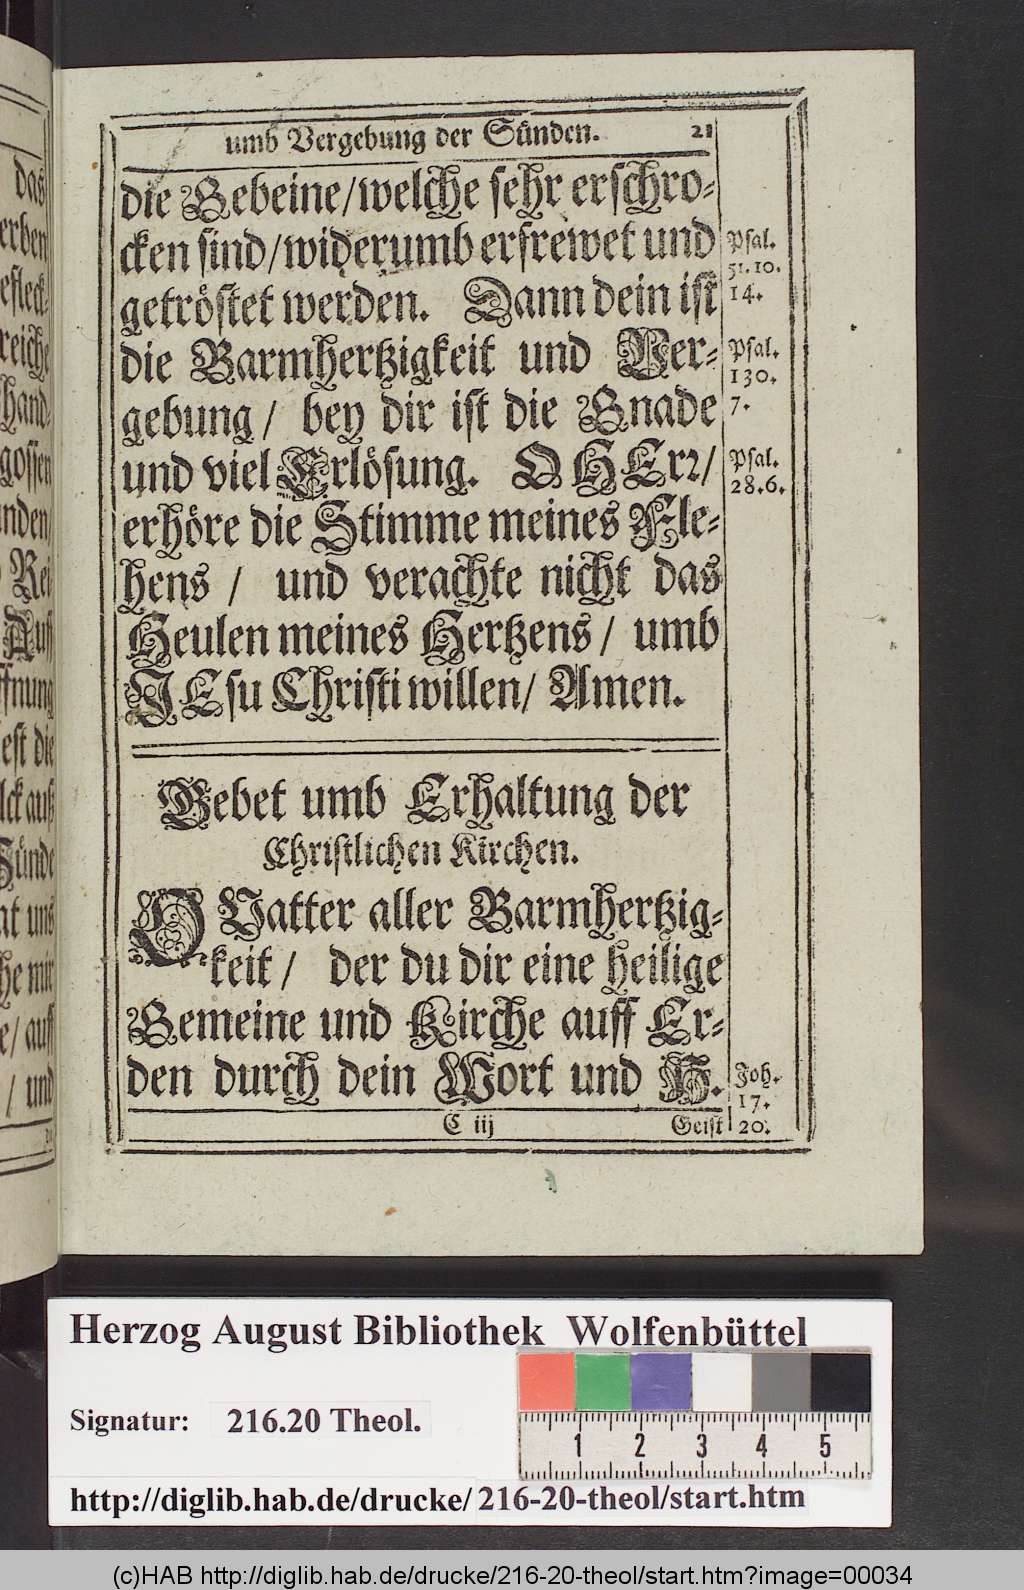 das
erben
efleck-
reiche
hand-
gossen
unden/
Rei
Auff
ffnung
est die
lck auß
Sünde
at uns
he mir
e/ auff
/ und
umb Vergebung der Sünden. 21
die Gebeine/welche sehr erschro-
cken sind/widerumb erfrewet und
getröstet werden. Dann dein ist
die Barmhertzigkeit und Ver-
gebung/ bey dir ist die Gnade
und viel Erlösung. O HErr/
erhöre die Stimme meines Fle-
hens / und verachte nicht das
Heulen meines Hertzens/ umb
JEsu Christi willen/ Amen.
Psal.
51.10.
14.
Psal.
130.
7.
Psal.
28.6.
Gebet umb Erhaltung der
Christlichen Kirchen.
O Vatter aller Barmhertzig-
keit/ der du dir eine heilige
Gemeine und Kirche auff Er-
den durch dein Wort und H.
Joh.
17.
20.
C iij Geist
Herzog August Bibliothek Wolfenbüttel
Signatur: 216.20 Theol.
1 2 3 4 5
http://diglib.hab.de/drucke/216-20-theol/start.htm
(c)HAB http://diglib.hab.de/drucke/216-20-theol/start.htm?image=00034